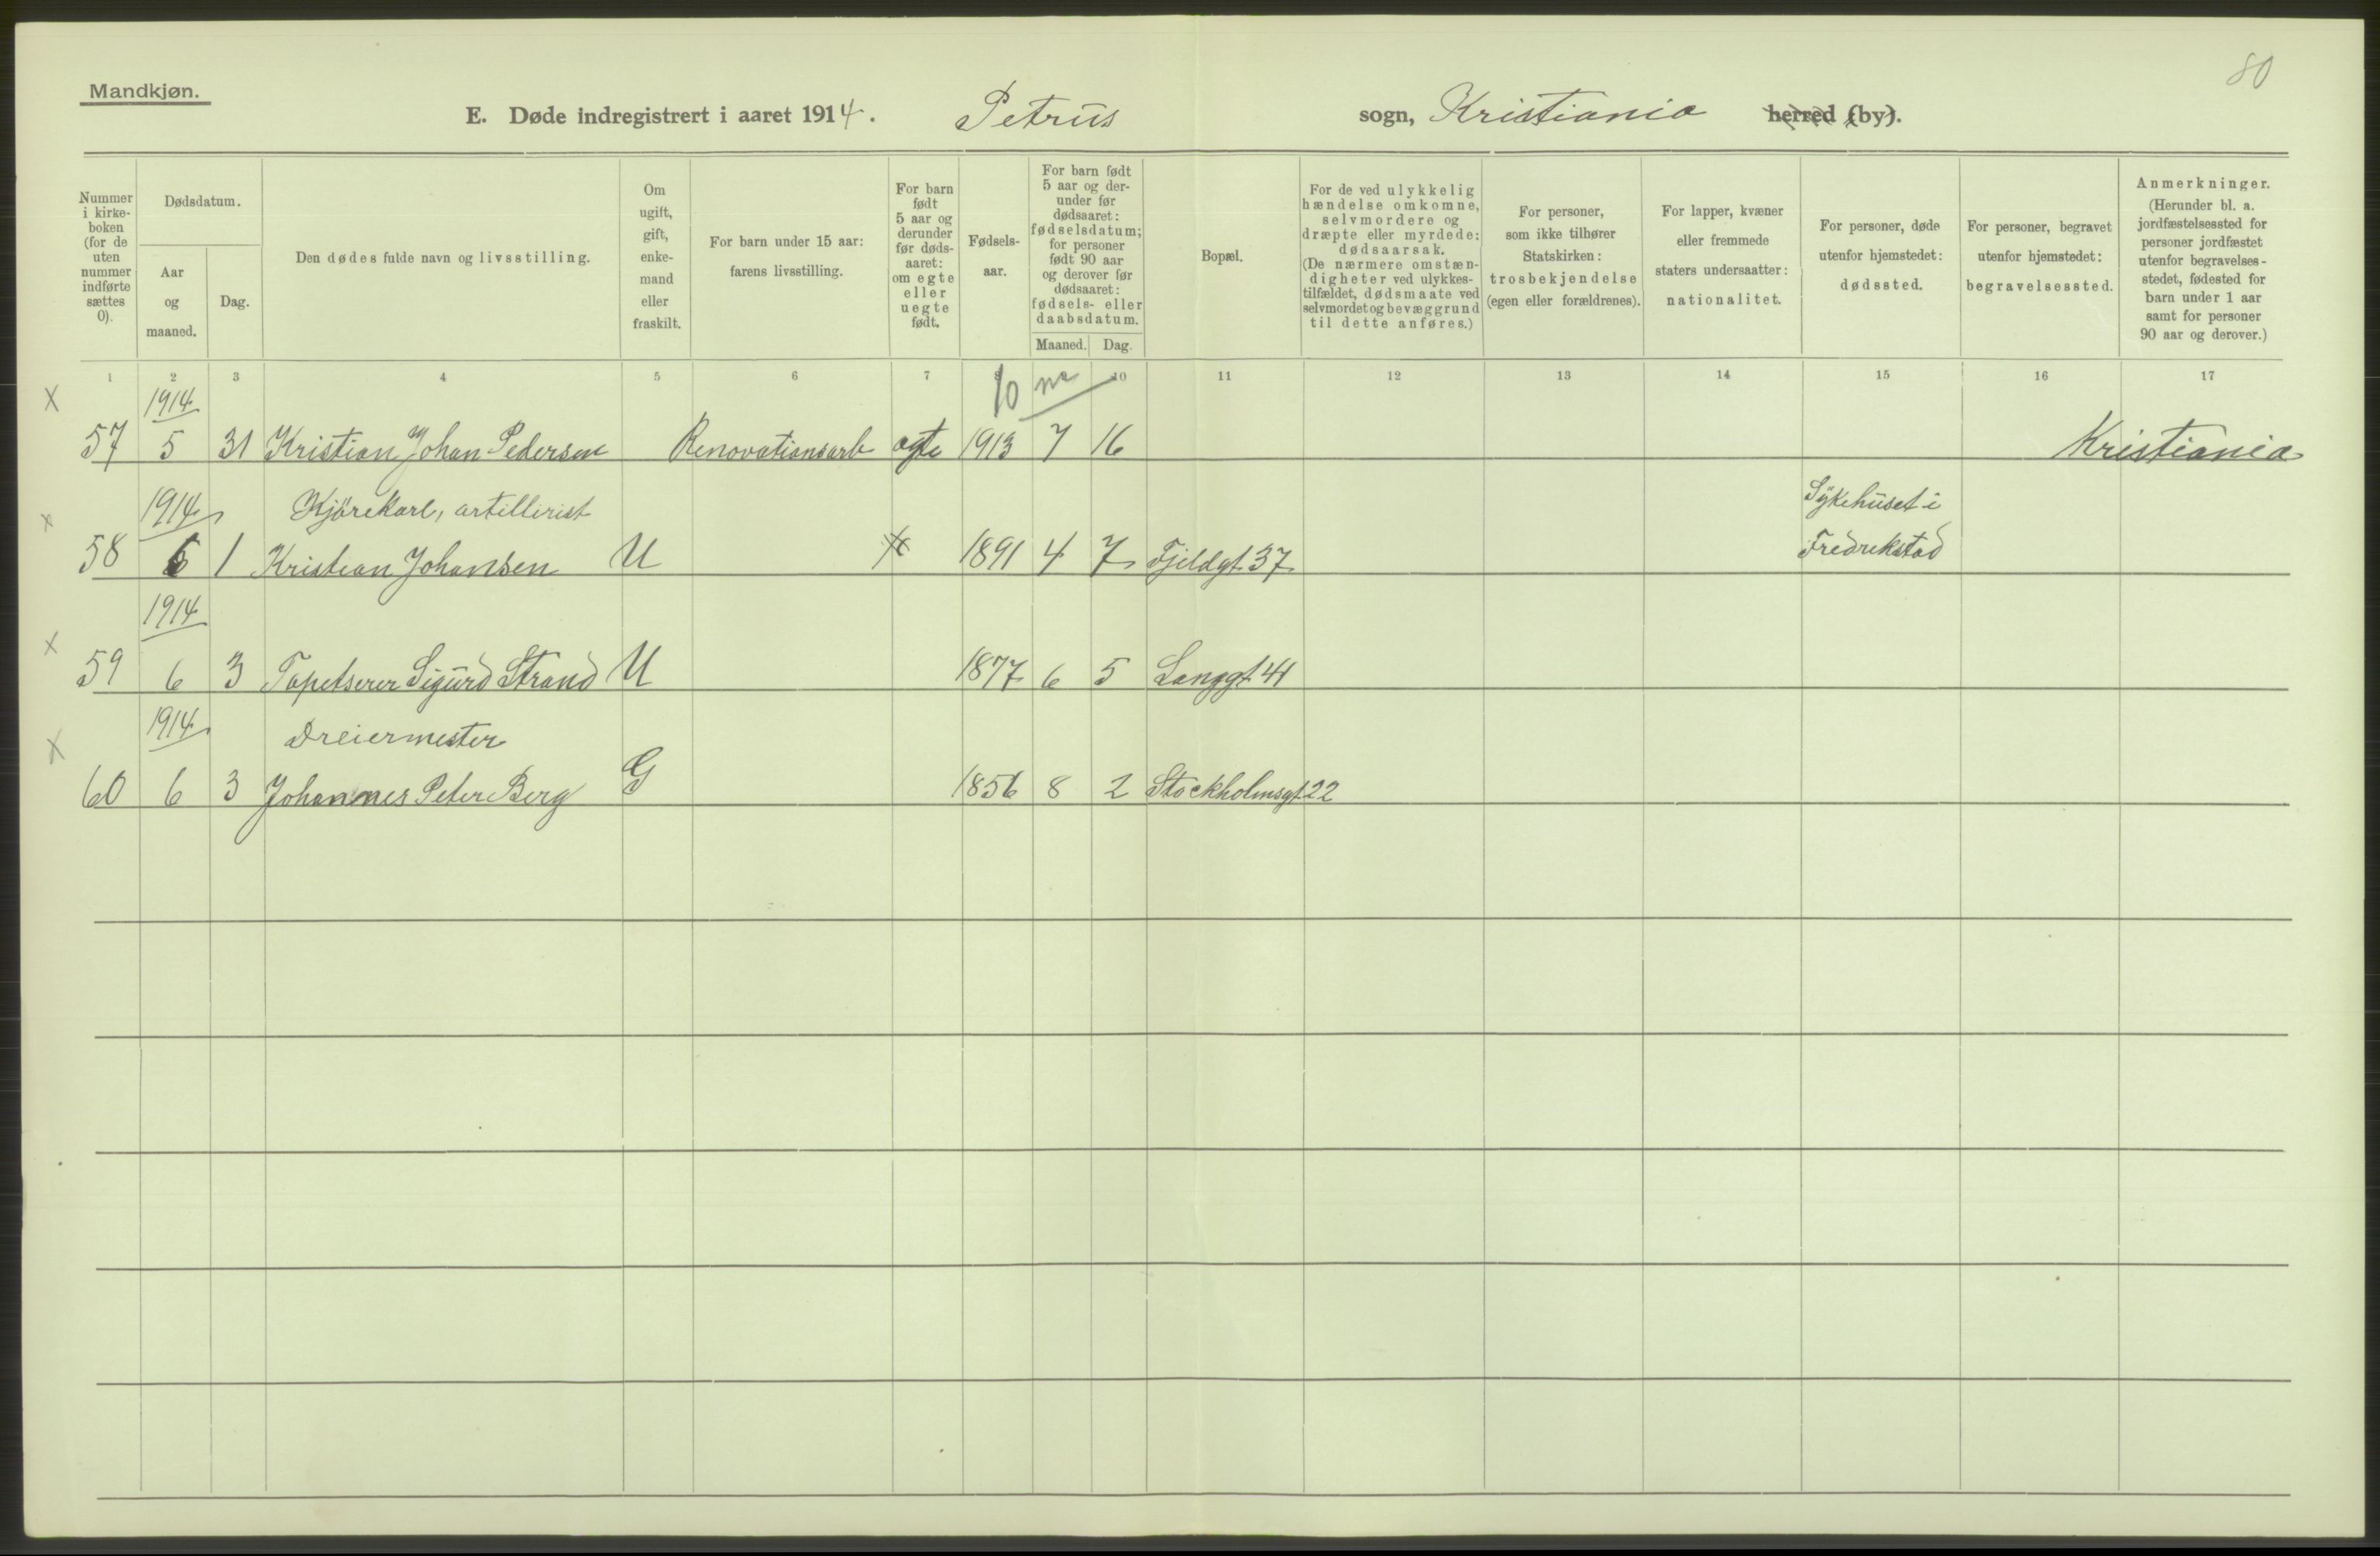 80
Mandkjøn.
E. Døde indregistrert i aaret 1914. Petrus sogn, Kristiania herred (by).
Nummer i kirke- boken (for de uten nummer indførte sættes 0).
Dødsdatum.
Aar og maaned.
Dag.
Den dødes fulde navn og livsstilling.
Om ugift, gift, enke- mand eller fraskilt.
For barn under 15 aar: farens livsstilling.
For barn født 5 aar og derunder før døds- aaret: om egte eller uegte født.
Fødsels- aar.
For barn født 5 aar og der- under før dødsaaret: fødselsdatum; for personer født 90 aar og derover før dødsaaret: fødsels- eller daabsdatum.
Maaned. Dag.
Bopæl.
For de ved ulykkelig hændelse omkomne, selvmordere og dræpte eller myrdede: dødsaarsak. (De nærmere omstæn- digheter ved ulykkes- tilfældet, dødsmaate ved selvmordet og bevæggrund til dette anføres.)
For personer, som ikke tilhører Statskirken: trosbekjendelse (egen eller forældrenes).
For lapper, kvæner eller fremmede staters undersaatter: nationalitet.
For personer, døde utenfor hjemstedet: dødssted.
For personer, begravet utenfor hjemstedet: begravelsessted.
Anmerkninger. (Herunder bl. a. jordfæstelsessted for personer jordfæstet utenfor begravelses- stedet, fødested for barn under 1 aar samt for personer 90 aar og derover.)
1 2 3 4 5 6 7 8 9 10 11 12 13 14 15 16 17
x 1914 10 m
57 5 31 Kristian Johan Pedersen Renovationsarb egte 1913 7 16 Kristiania
x 1914 Kjørekarl, artillerist Sykehuset i
58 6 1 Kristian Johansen U x 1891 4 7 Fjeldgt 37 Fredrikstad
1914
x
59 6 3 Tapetserer Sigurd Strand U 1877 6 5 Langgt 41
x 1914 Dreiermester
60 6 3 Johannes Peter Berg G 1856 8 2 Stockholmsgt 22